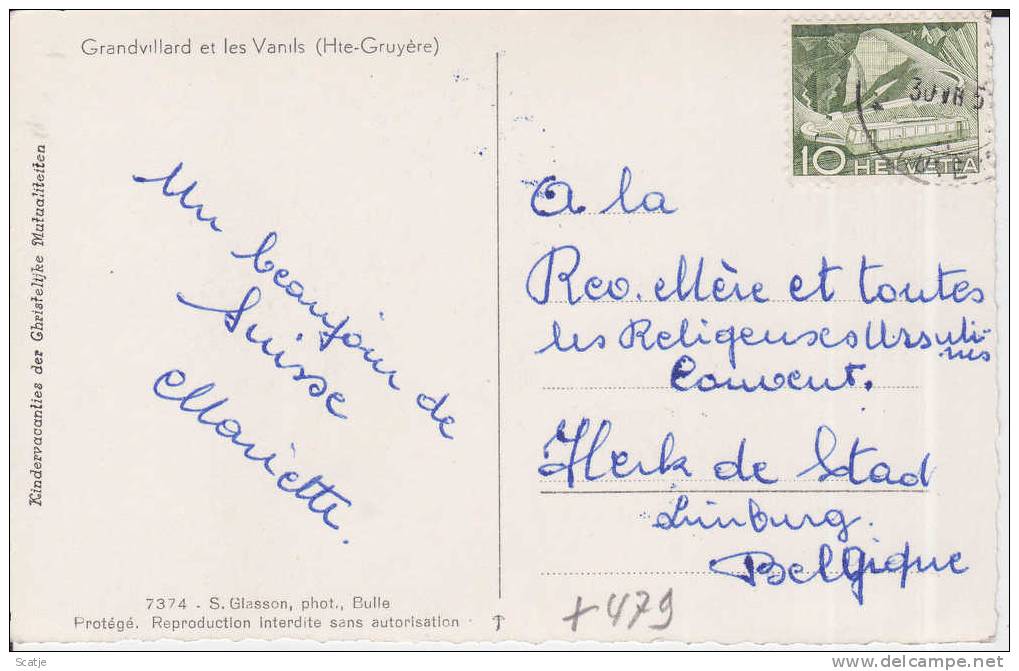 Grandvillard et les Vanils (Hte-Gruyère)
Kindervacanties der Christelijke Mutualiteiten
Un beaujour de
Suisse
Mariette.
7374 - S. Glasson, phot., Bulle
Protégé. Reproduction interdite sans autorisation
30 VII 5
10 HELVETIA
A la
Rev. Mère et toutes
les Religeuses Ursuli-
nes
Couvent.
Herk de Stad
Limburg.
Belgique
+ 479
Scatje
delcampe.net